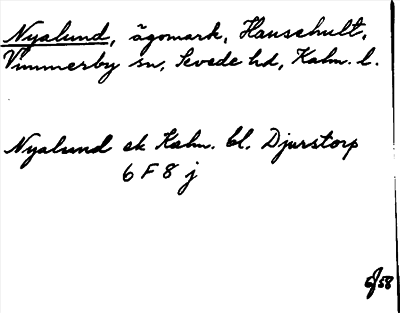 Nyalund, ägomark, Hauschult,
Vimmerby sn, Sevede hd, Kalm. l.
Nyalund ek Kalm. bl. Djurstorp
6 F 8 j